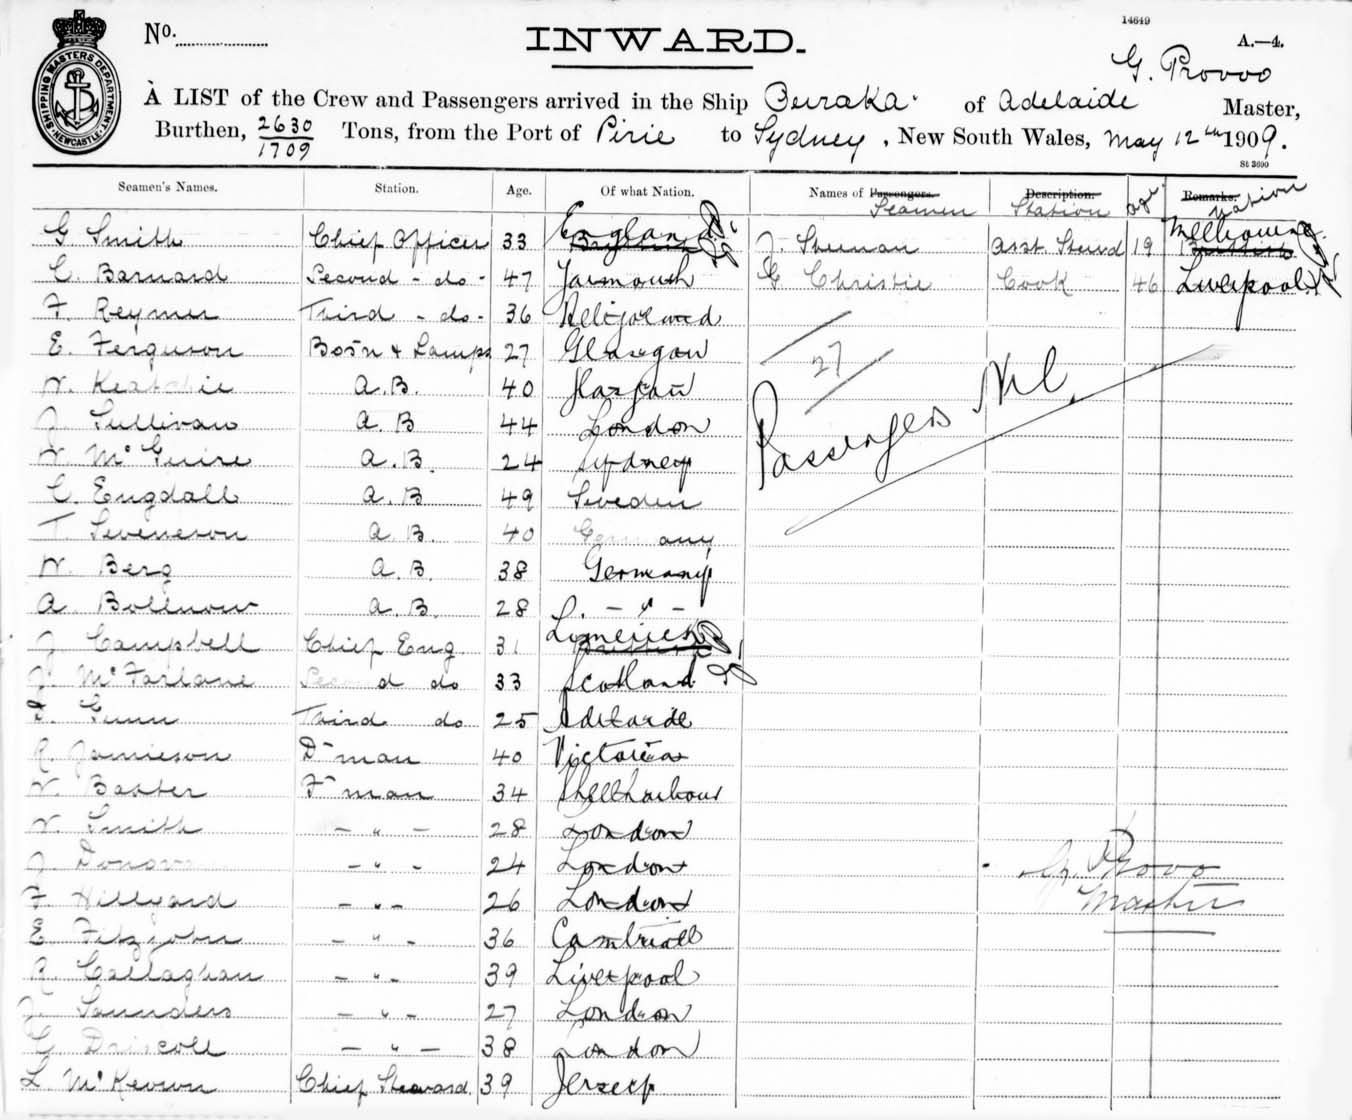 14649
No. INWARD. A.—4.
G. Provoo
A LIST of the Crew and Passengers arrived in the Ship of Adelaide Master,
Burthen, 2630 Tons, from the Port of Pirie to Sydney, New South Wales, May 12th 1909.
1709
St 3690
SHIPPING MASTERS DEPARTMENT NEWCASTLE
Seamen's Names. Station. Age. Of what Nation. Names of Passengers. Description. age Remarks. Nation
Seamen Station
G Smith Chief Officer 33 England J. Sherman asst. Stewd 19 Melbourne
C. Barnard Second - do - 47 Yarmouth G Christie Cook 46 Liverpool
F. Reymer Third - do - 36 Heligoland
E. Ferguson Bosn & Lamps 27 Glasgow
27
W. A.B. 40 Glasgow
Passengers Nil.
J. Sullivan A.B 44 London
W McGuire A.B. 24 Sydney
C. Engdall A.B 49 Sweden
T. Seveneson A.B. 40 Germany
W. Berg A.B. 38 Germany
A. Bollnow A.B. 28 - " -
J Campbell Chief Eng 31 Limerick
J. McFarlane Second do 33 Scotland
Gunn Third do 25 Adelaide
R. Jamieson D-man 40 Victoria
W. Baxter F-man 34 Shellharbour
W. Smith - " - 28 London
J. Donovan - " - 24 London
G. Provoo
F. Hillyard - " - 26 London
Master
E Fitzjohn - " - 36
R. Callaghan - " - 39 Liverpool
J. Saunders - " - 27 London
C Driscoll - " - 38 London
L. McKeown Chief Steward. 39 Jersey